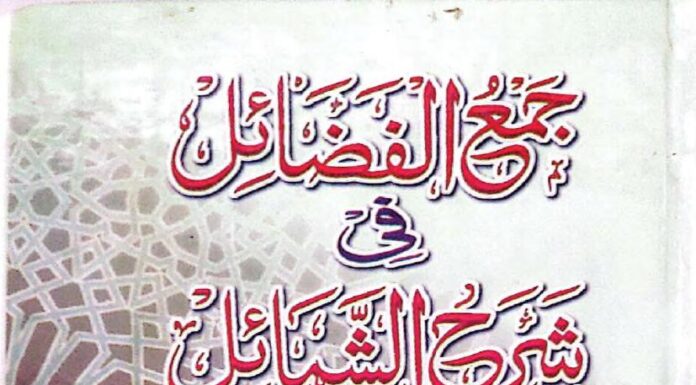 جَمْعُ الْفَضَائِل
فِي
شَرَحُ الشَّمَائِل